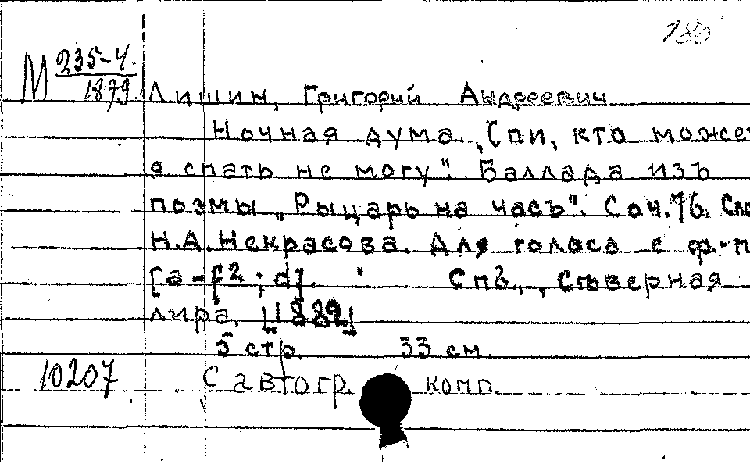 М 235-4
1879
Лишин, Григорий Андреевич
Ночная дума „Спи, кто може
я спать не могу". Баллада изъ
поэмы „Рыцарь на часъ". Соч. 76. Сло
Н.А.Некрасова. Для голоса с ф.-п
[a-f2; d]. Спб., „Съверная
лира, [1882]
5 стр. 33 см.
10207 С автогр. комп.